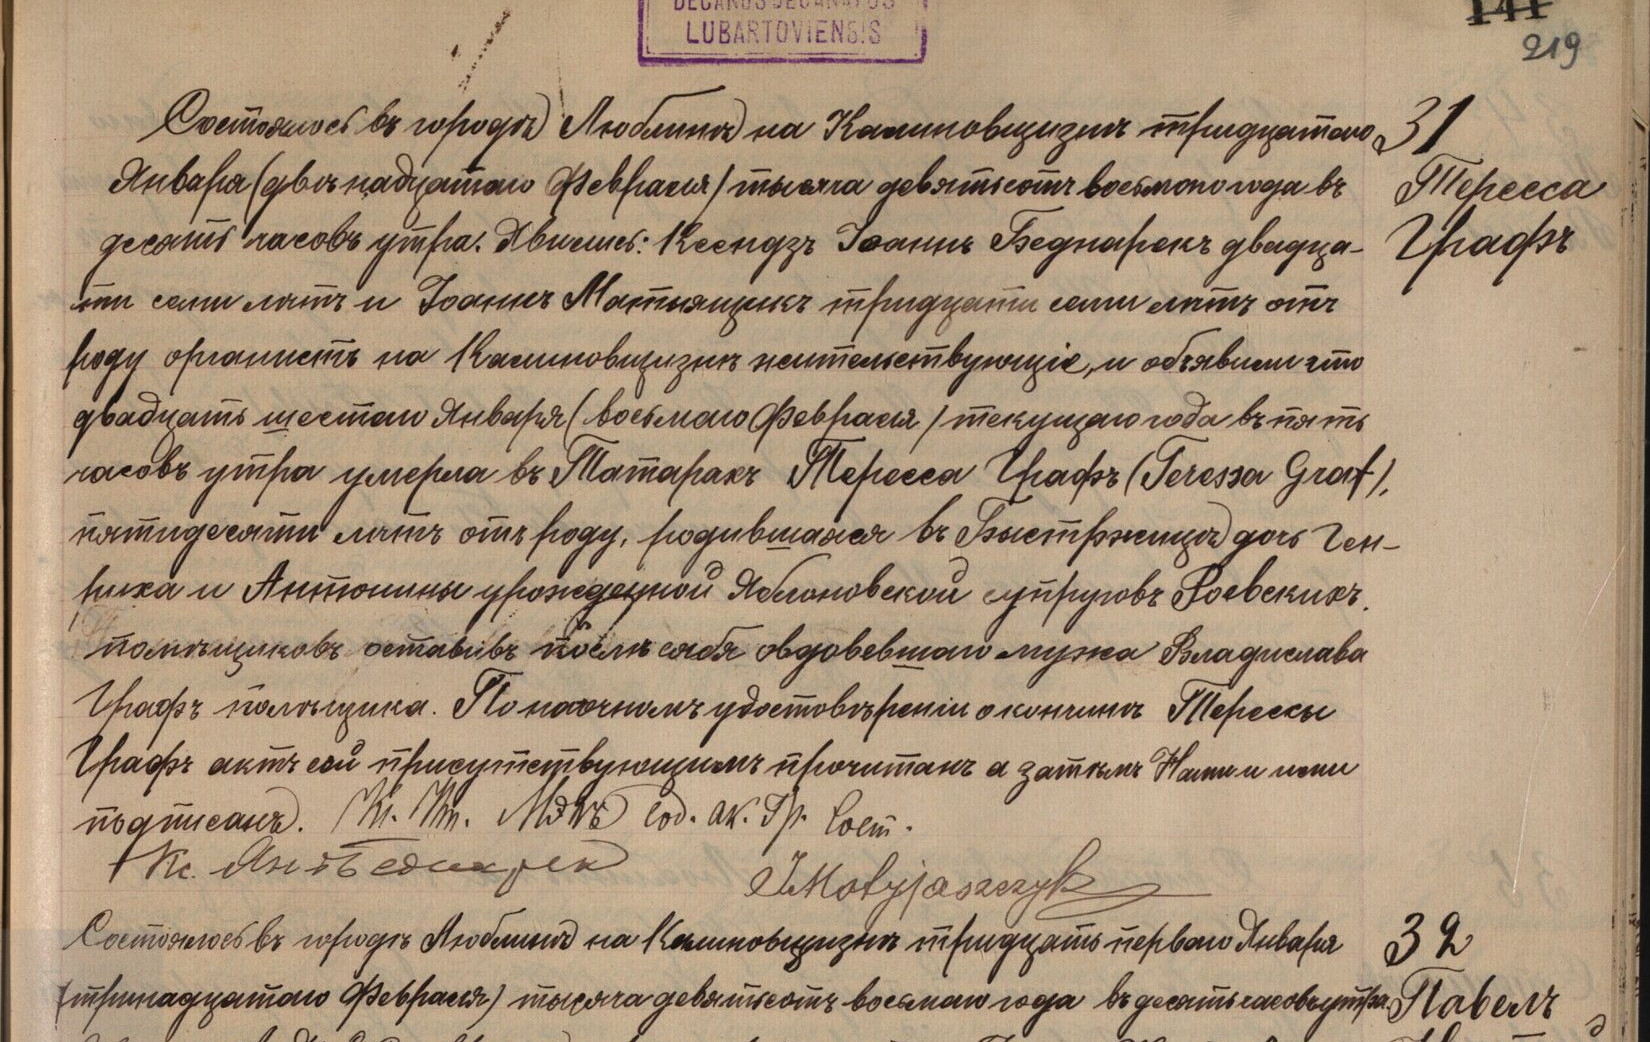 DECANUS DECANATUS
LUBARTOVIENSIS
141
219
Состоялось въ городѣ Люблинѣ на Калиновщизнѣ тридцатаго
Января (двѣнадцатаго Февраля) тысяча девятьсотъ восьмого года въ
десять часовъ утра. Явились: Ксендзъ Іоаннъ Беднарекъ двадца-
ти семи лѣтъ и Іоаннъ Матыящикъ тридцати семи лѣтъ отъ
роду органистъ на Калиновщизнѣ жительствующіе, и объявили что
двадцать шестаго Января (восьмаго Февраля) текущаго года въ пять
часовъ утра умерла въ Татарахъ Тересса Графъ (Teressa Graf),
пятидесяти лѣтъ отъ роду, родившаяся въ Быстржицѣ дочь Ген-
риха и Антонины урожденной Яблоновской супруговъ Роевскихъ
помѣщиковъ оставивъ послѣ себя овдовевшаго мужа Владислава
Графъ помѣщика. По наочномъ удостовѣреніи о кончинѣ Терессы
Графъ актъ сей присутствующимъ прочитанъ а затѣмъ Нами и ими
подписанъ. Сод. ак. Гр. Сост.
Кс. Янъ Беднарек
JMatyjaszczyk
31
Тересса
Графъ
Состоялось въ городѣ Люблинѣ на Калиновщизнѣ тридцать перваго Января
(тринадцатаго Февраля) тысяча девятьсотъ восьмаго года въ десять часовъ утра.
32
Павелъ